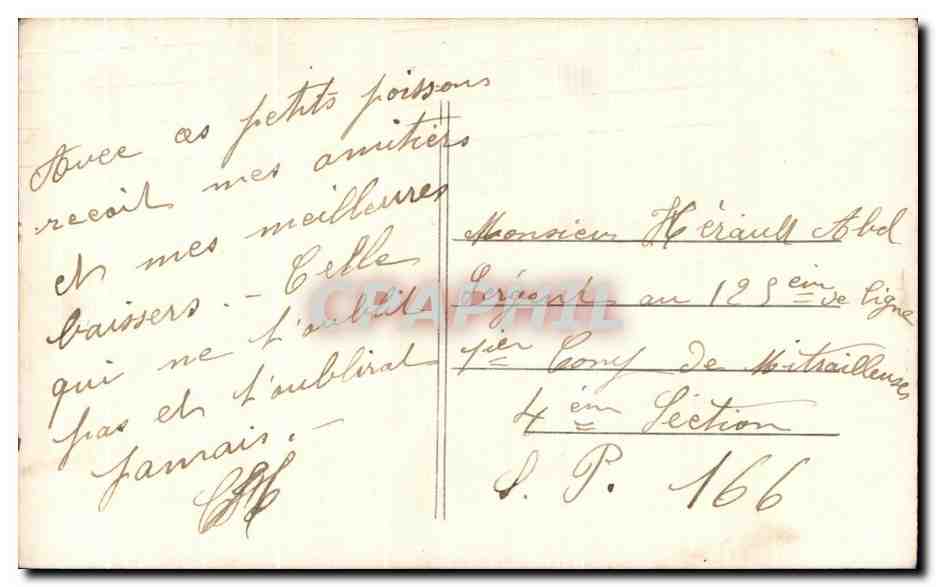 Avec ces petits poissons
recoit mes amitiers
et mes meilleures
baissers. - Celle
qui ne t'oublit
pas et t'oublirat
jamais. -
Monsieur Hérault Abel
Sergent au 125 èm de ligne
1 ier Comp de Mitrailleuses
4 ém Séction
S. P. 166
CPAPHIL